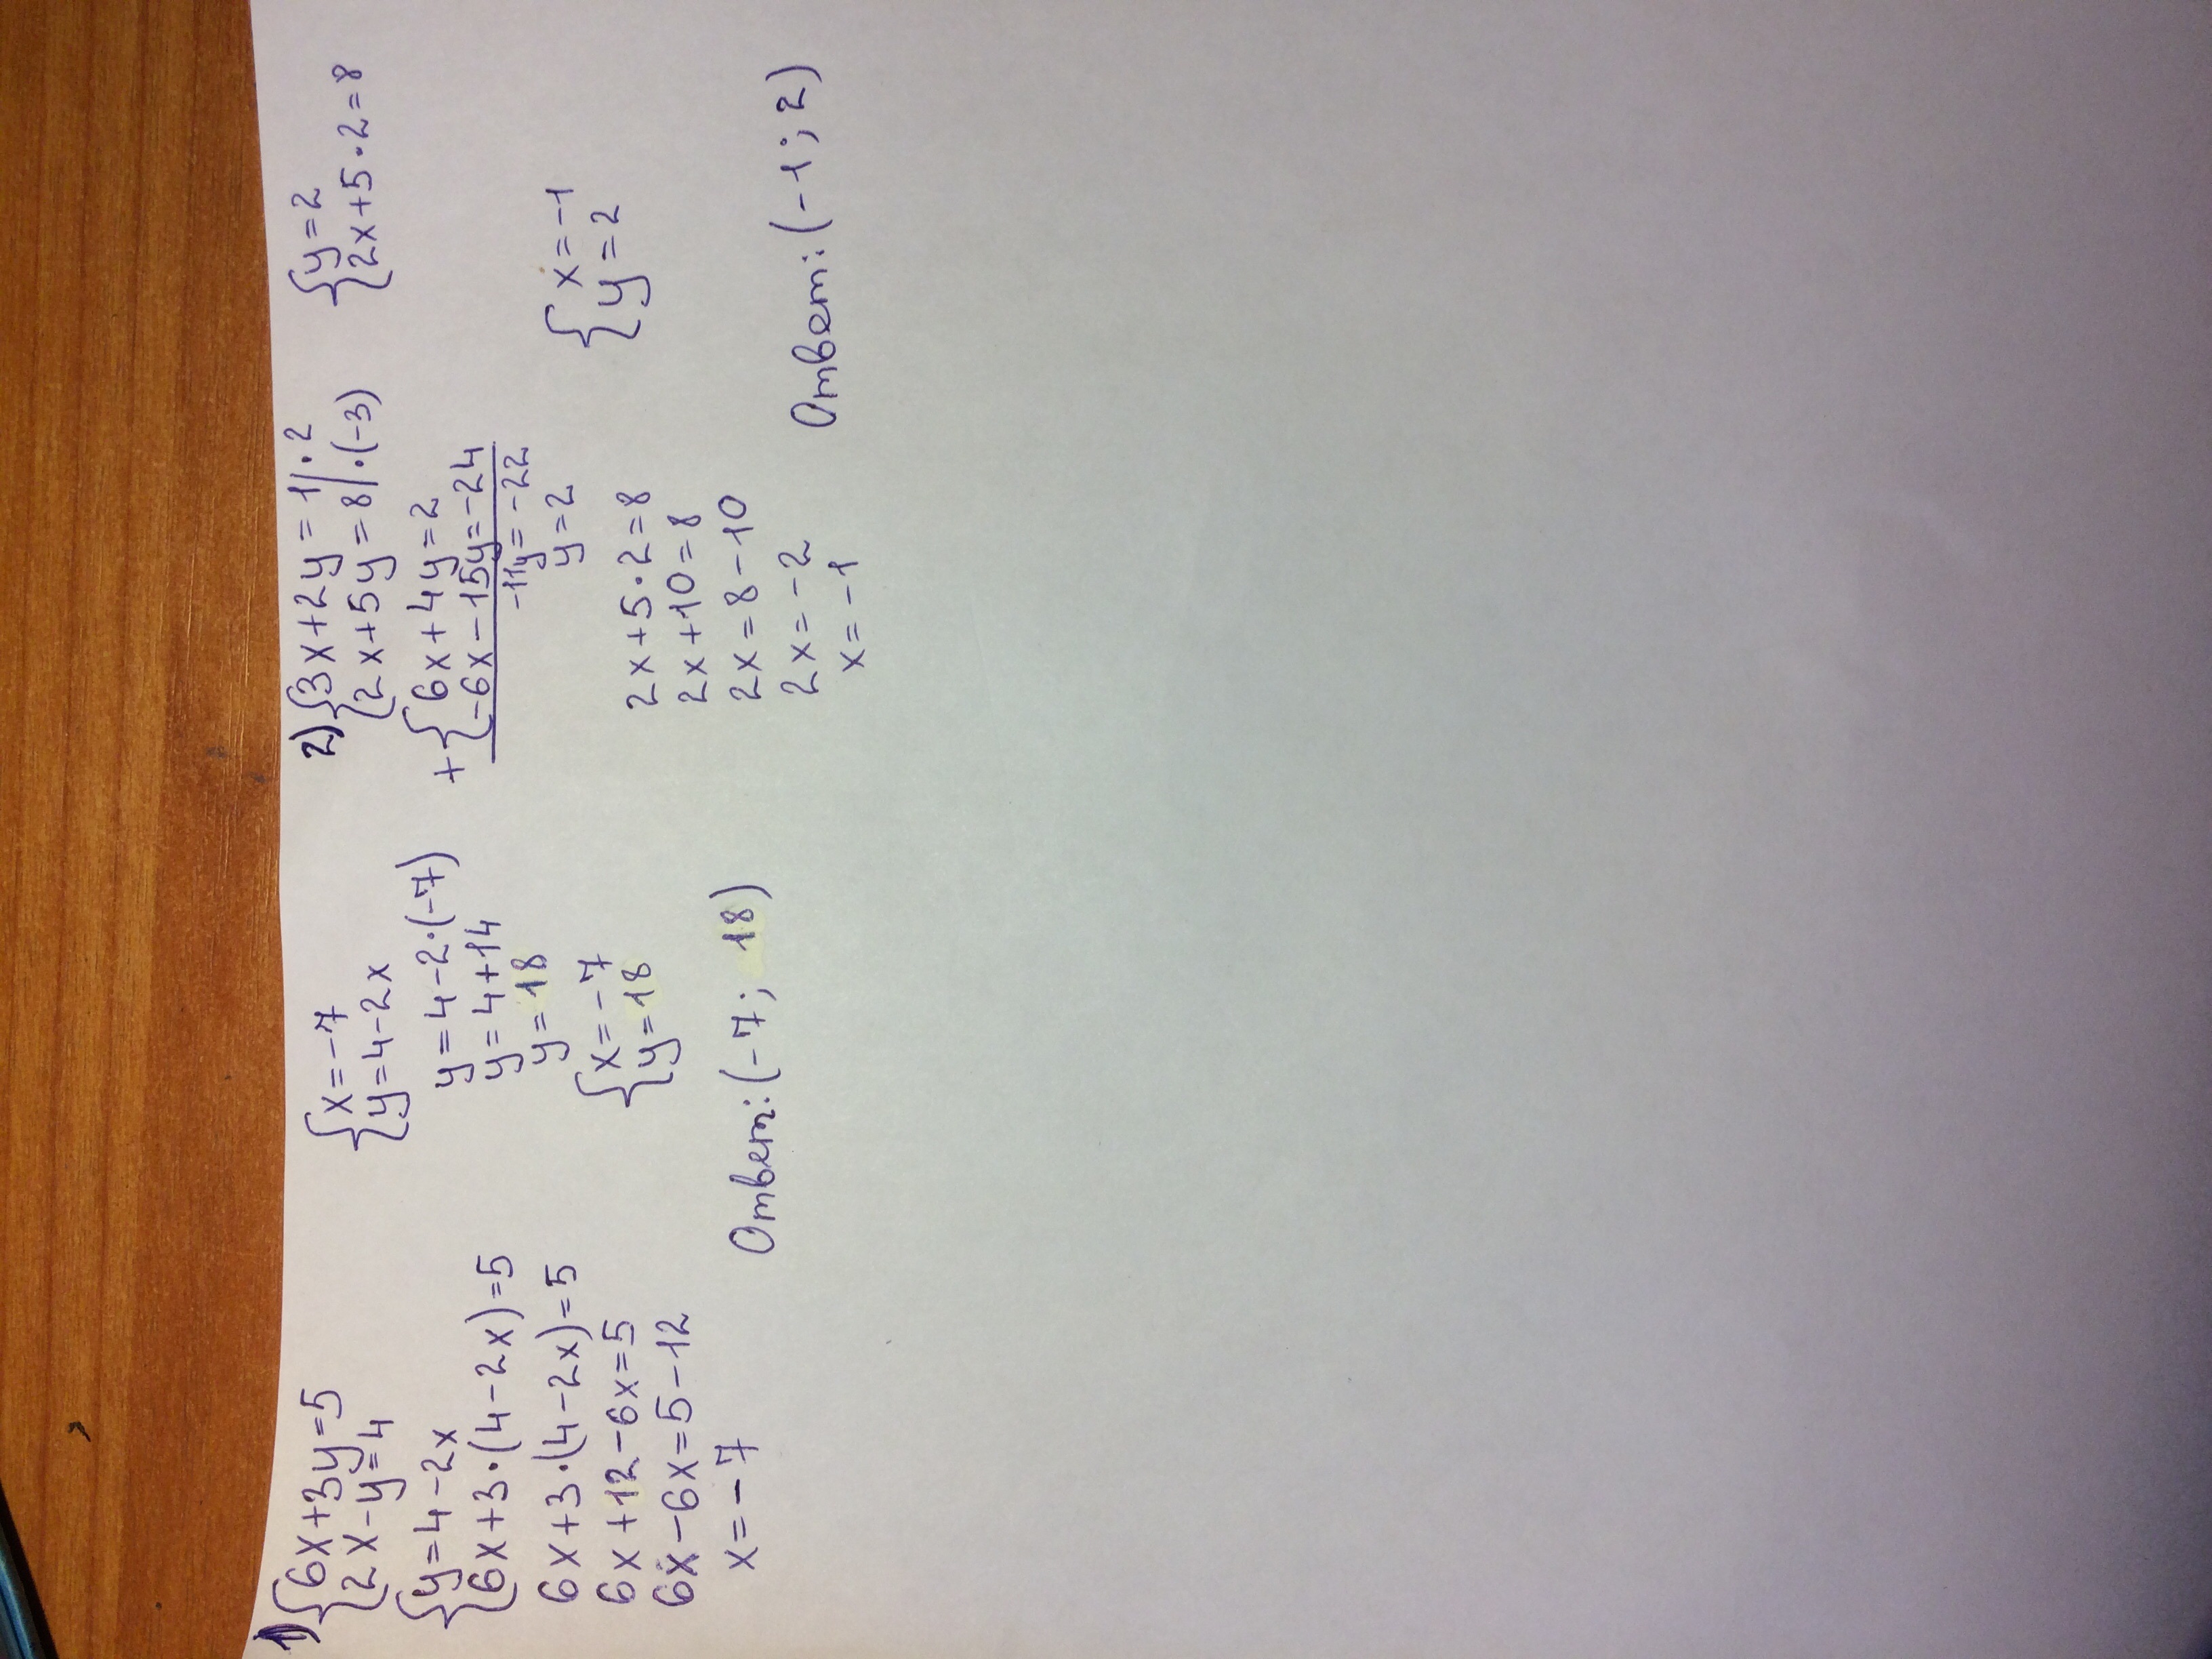 1) {6x+3y=5
{2x-y=4
{y=4-2x
{6x+3·(4-2x)=5
6x+3·(4-2x)=5
6x+12-6x=5
6x-6x=5-12
x=-7
{x=-7
{y=4-2x
y=4-2·(-7)
y=4+14
y=18
{x=-7
{y=18
Ответ:(-7; 18)
2) {3x+2y=1|·2
{2x+5y=8|·(-3)
+{6x+4y=2
{-6x-15y=-24
-11y=-22
y=2
2x+5·2=8
2x+10=8
2x=8-10
2x=-2
x=-1
{y=2
{2x+5·2=8
{x=-1
{y=2
Ответ:(-1;2)